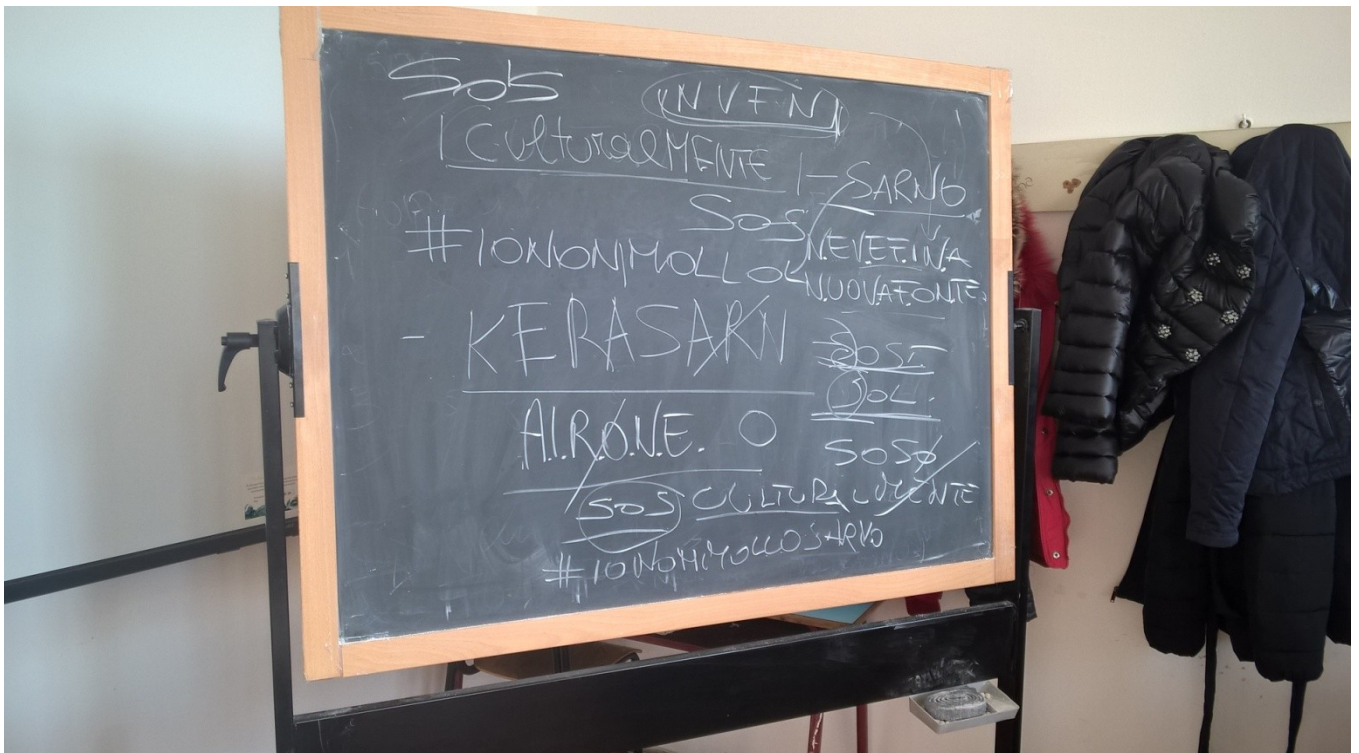 SOS
NVFN
CulturalMENTE
- SARNO
SOS
#IONONMOLLO
N.EV.E.F.IN.A
N.UOVA.F.ONTE.
- KERASARN
SOSI
SOL.
A.I.R.O.N.E. O
SOSO
SOS CULTURALMENTE
#IONOMIMOLLOSARNO